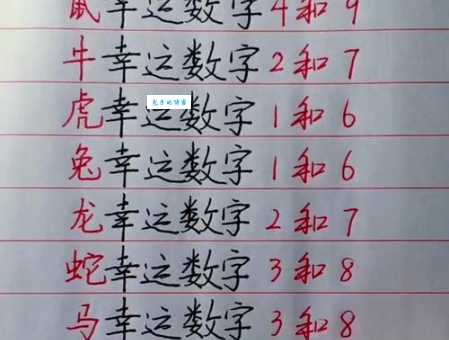 鼠幸运数字4和9
牛幸运数字2和7
虎幸运数字1和6
兔幸运数字1和6
龙幸运数字2和7
蛇幸运数字3和8
马幸运数字3和8